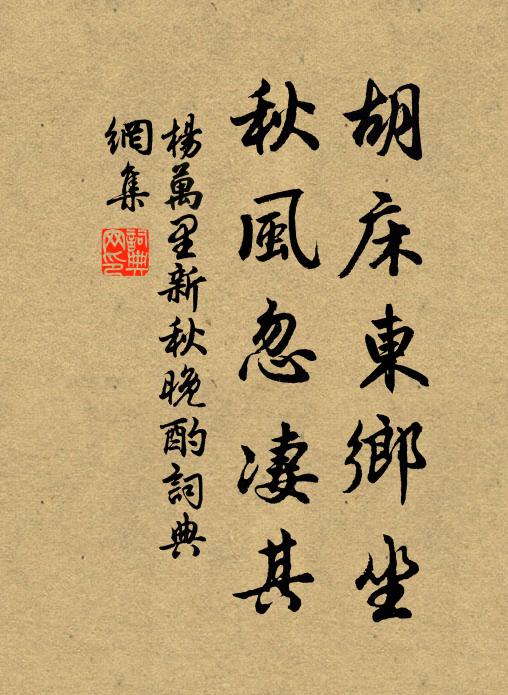 胡床東鄉坐
秋風忽淒其
楊萬里新秋晚酌詞典
網集
詞典網印